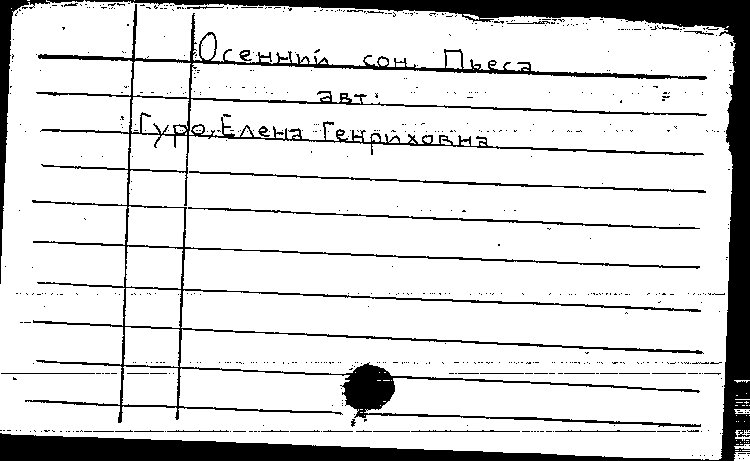 Осенний сон. Пьеса
авт:
Гуро, Елена Генриховна